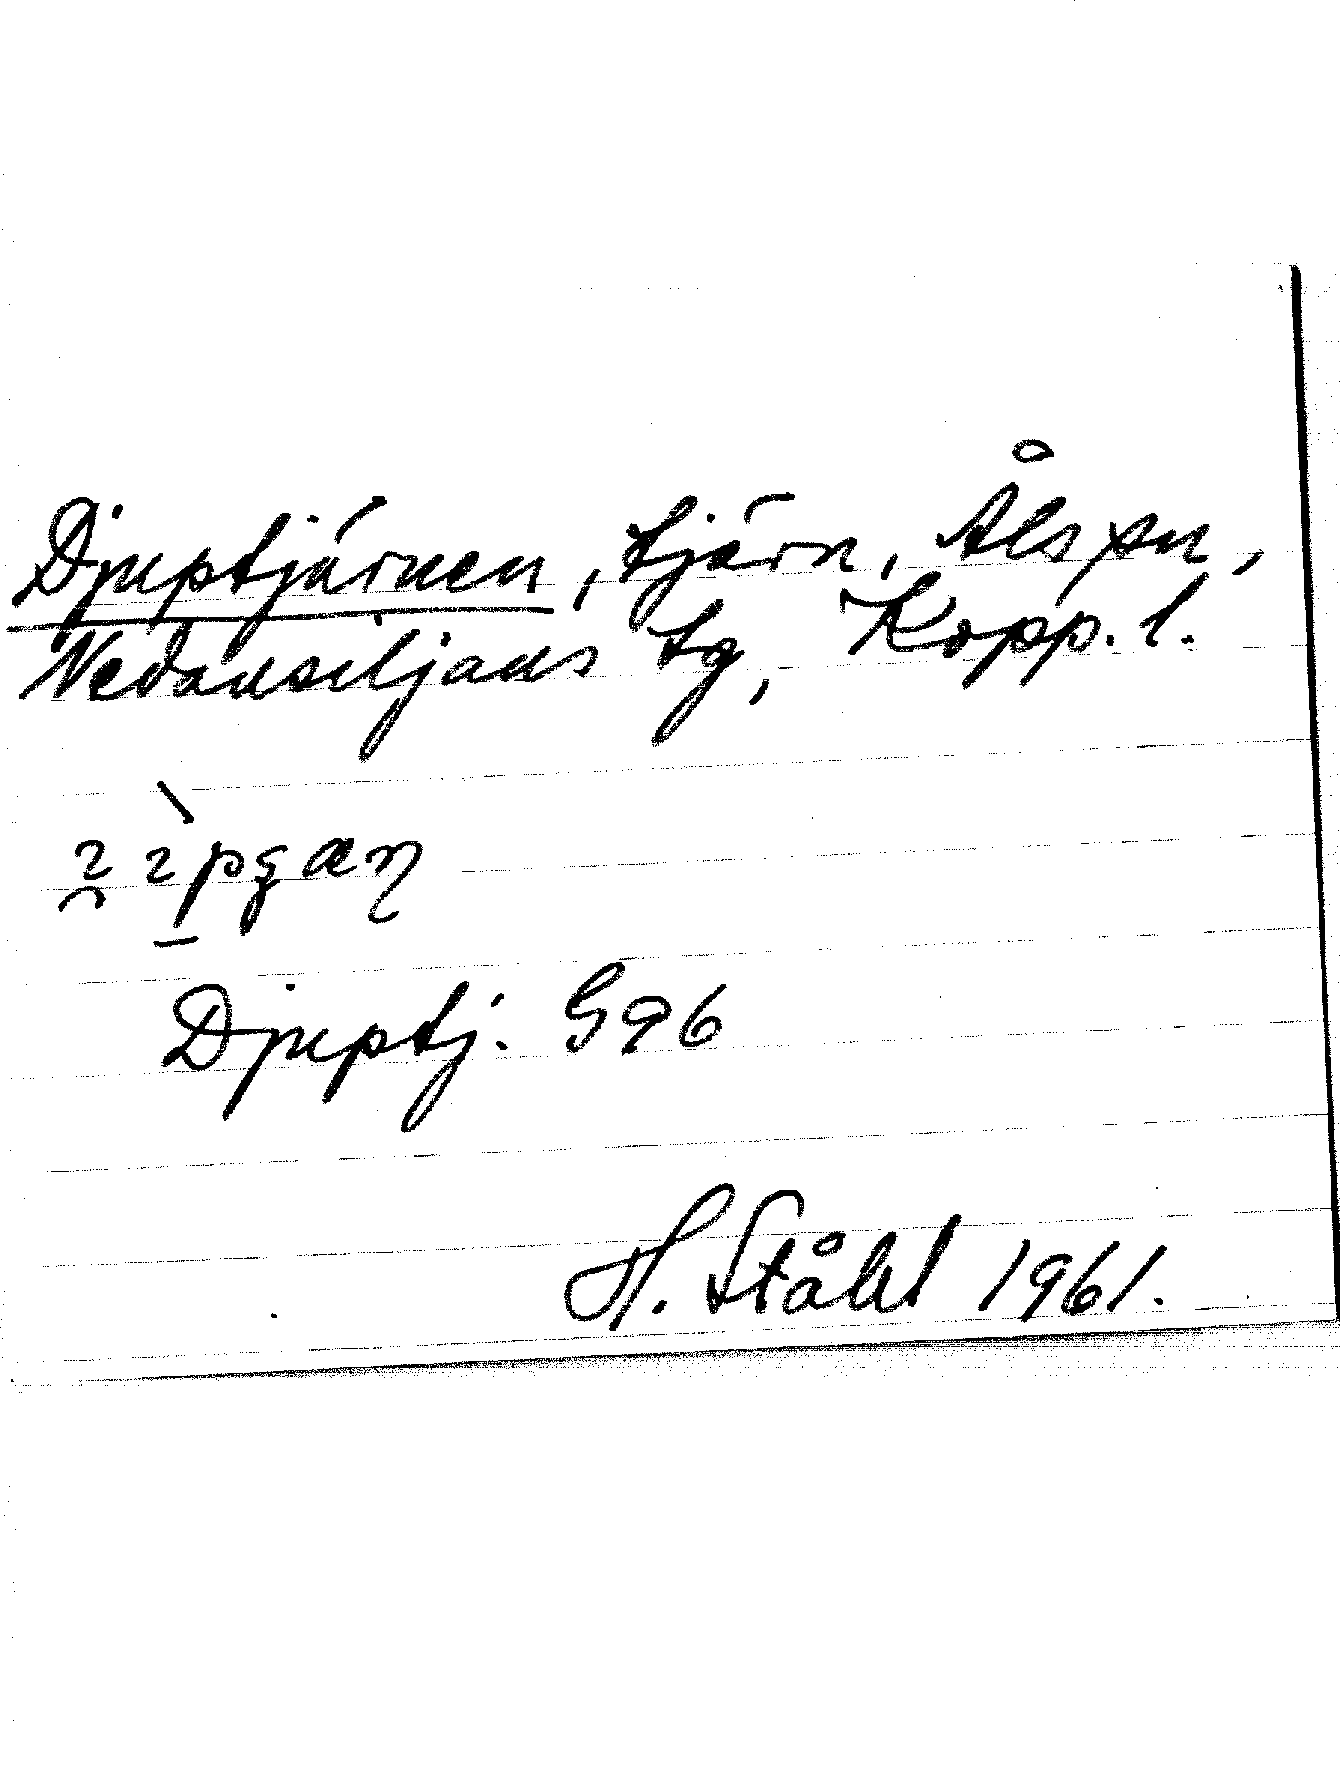 Djuptjärnen, tjärn, Åls sn,
Nedansiljans tg, Kopp. l.
Djuptj. G96
H. Ståhl 1961.